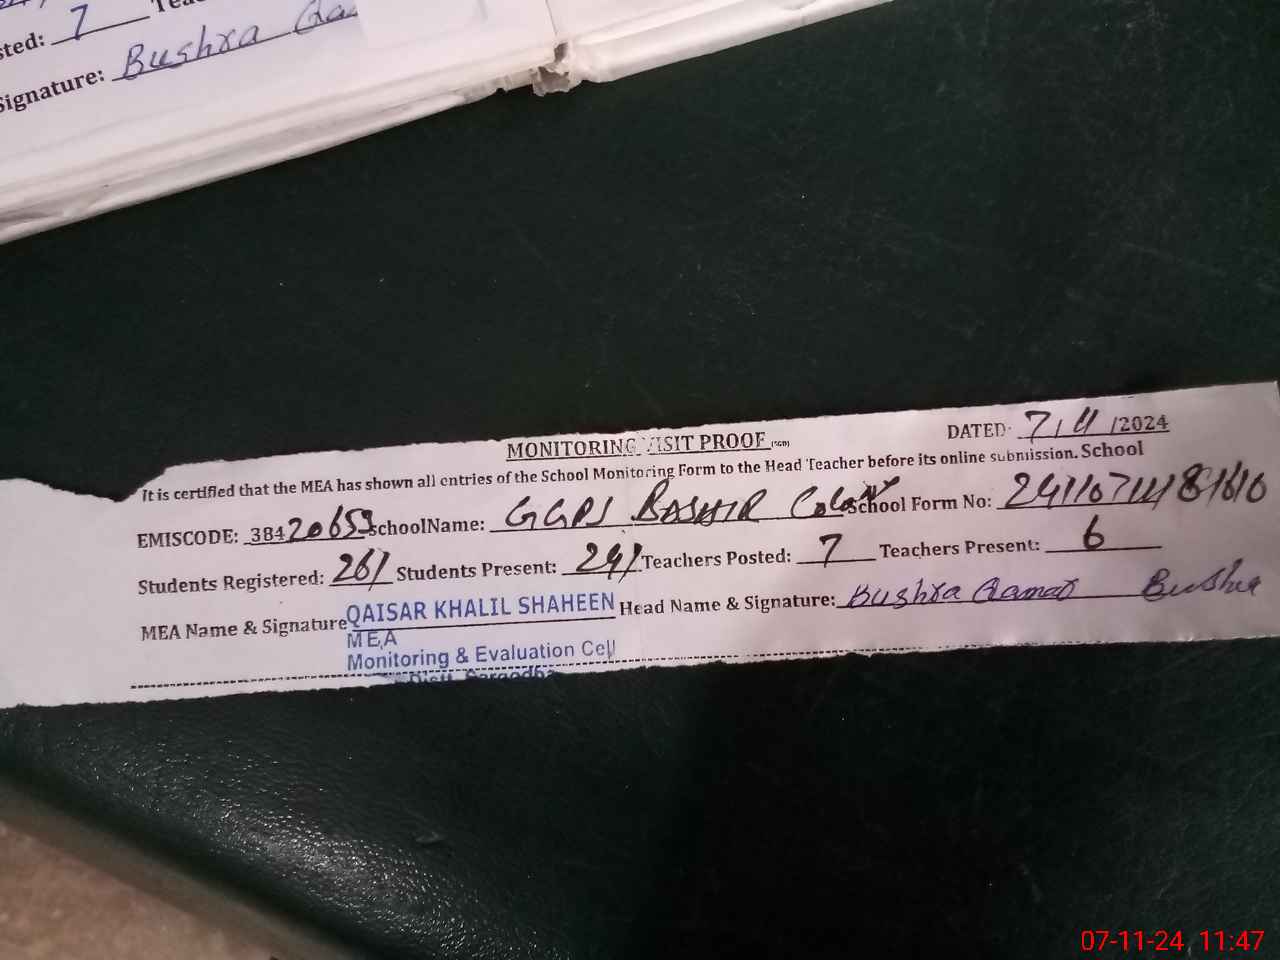 sted: 7
Signature: Bushra
MONITORING VISIT PROOF
DATED: 7/11/2024
It is certified that the MEA has shown all entries of the School Monitoring Form to the Head Teacher before its online submission. School
EMISCODE: 38420653 SchoolName: GGPS BASHIR Colony School Form No:
Students Registered: 261 Students Present: 241 Teachers Posted: 7 Teachers Present: 6
MEA Name & Signature QAISAR KHALIL SHAHEEN Head Name & Signature: Bushra Qamar Bushra
MEA
Monitoring & Evaluation Cell
Distt. Sargodha
07-11-24, 11:47